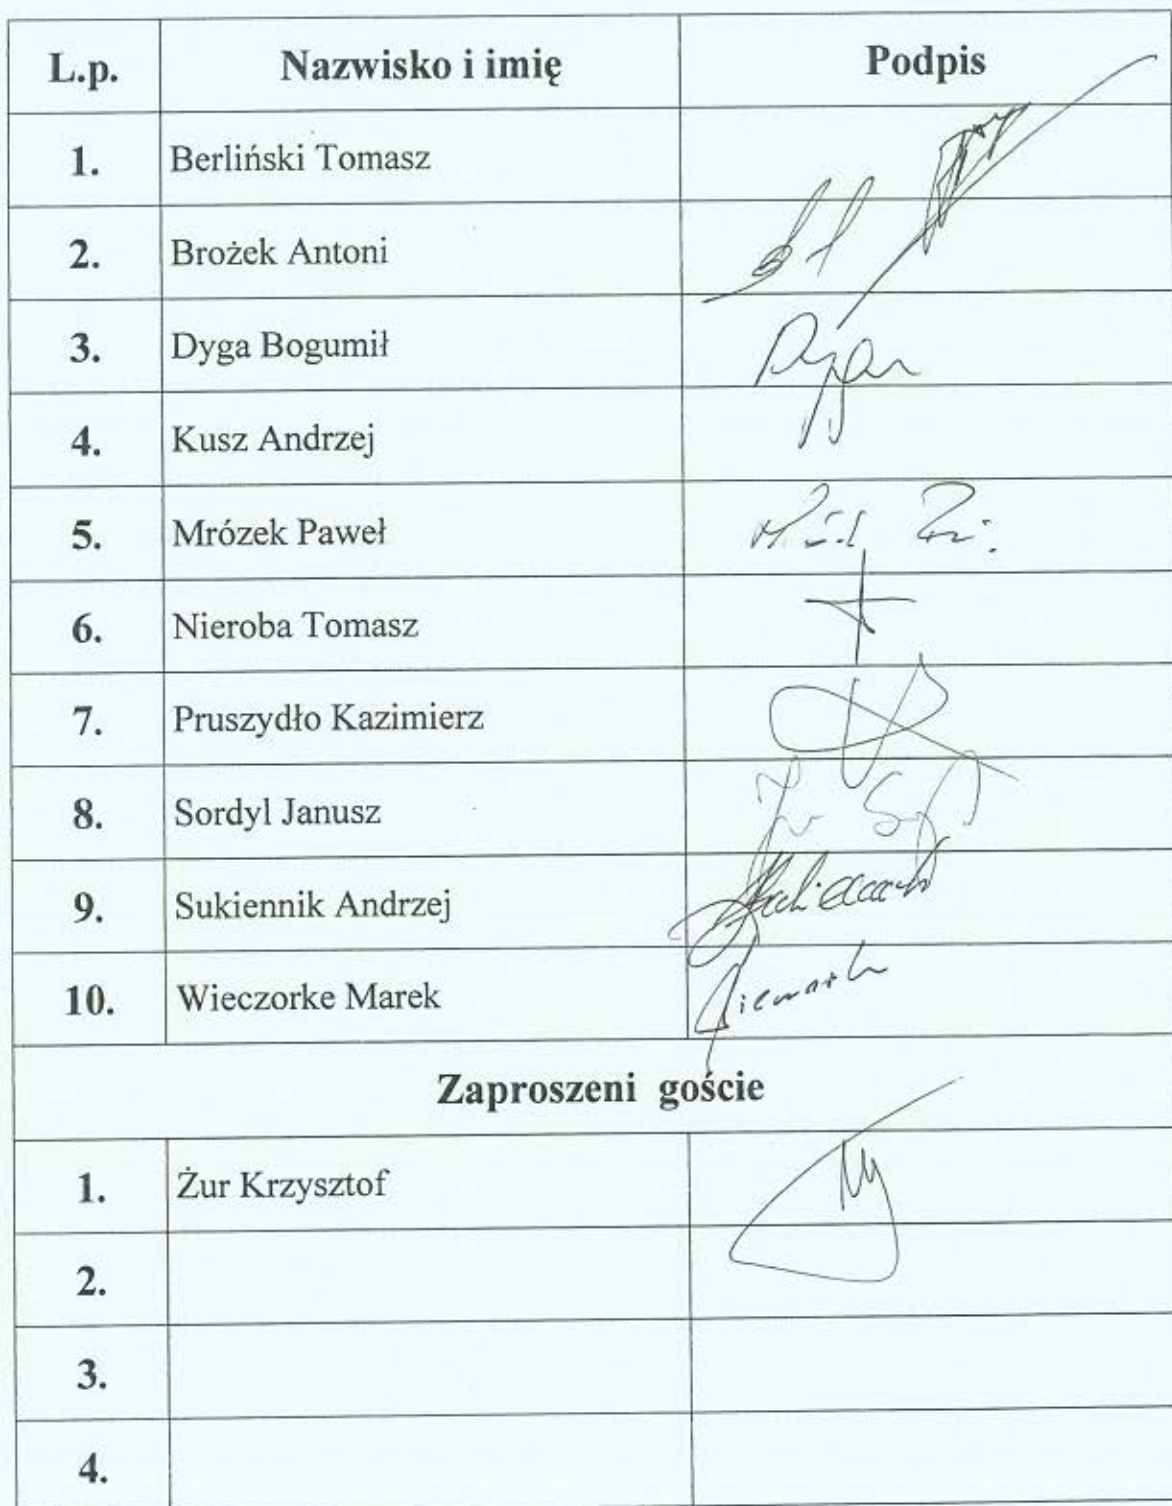 L.p. Nazwisko i imię Podpis
1. Berliński Tomasz
2. Brożek Antoni
3. Dyga Bogumił
4. Kusz Andrzej
5. Mrózek Paweł
6. Nieroba Tomasz
7. Pruszydło Kazimierz
8. Sordyl Janusz
9. Sukiennik Andrzej
10. Wieczorke Marek
Zaproszeni goście
1. Żur Krzysztof
2.
3.
4.